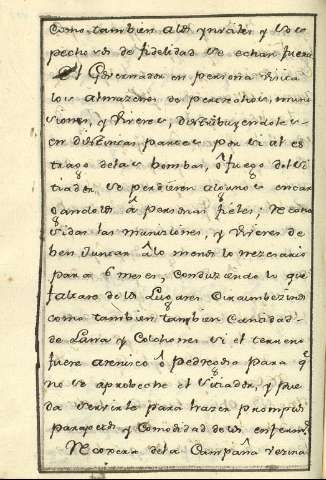 Como tambien a los ynutiles y sos
pechosos de fidelidad se echan fuera
El Governador en persona visita
los almazenes de pertrechos, muni
siones, y Viveres, distribuyendoles
en distintas partes por si al es
trago de las bombas, ô fuego del si
tiador, se perdieren algunos encar
gandolos â personas fieles; Neces
sidar las munisiones, y Viveres de
ben Juntar â lo menos lo nezesario
para 6 meses, conduziendo lo que
faltare de los Lugares Circumbezinos
como tambien tambien Cantidad
de Lana y Colchones si el terreno
fuere arenico ô Pedregoso para q.e
no se aprobeche el Sitiador, y pue
da servirle para hazer promptos
parapetos y Comodidad de los enferm.s
de la Campaña vezina